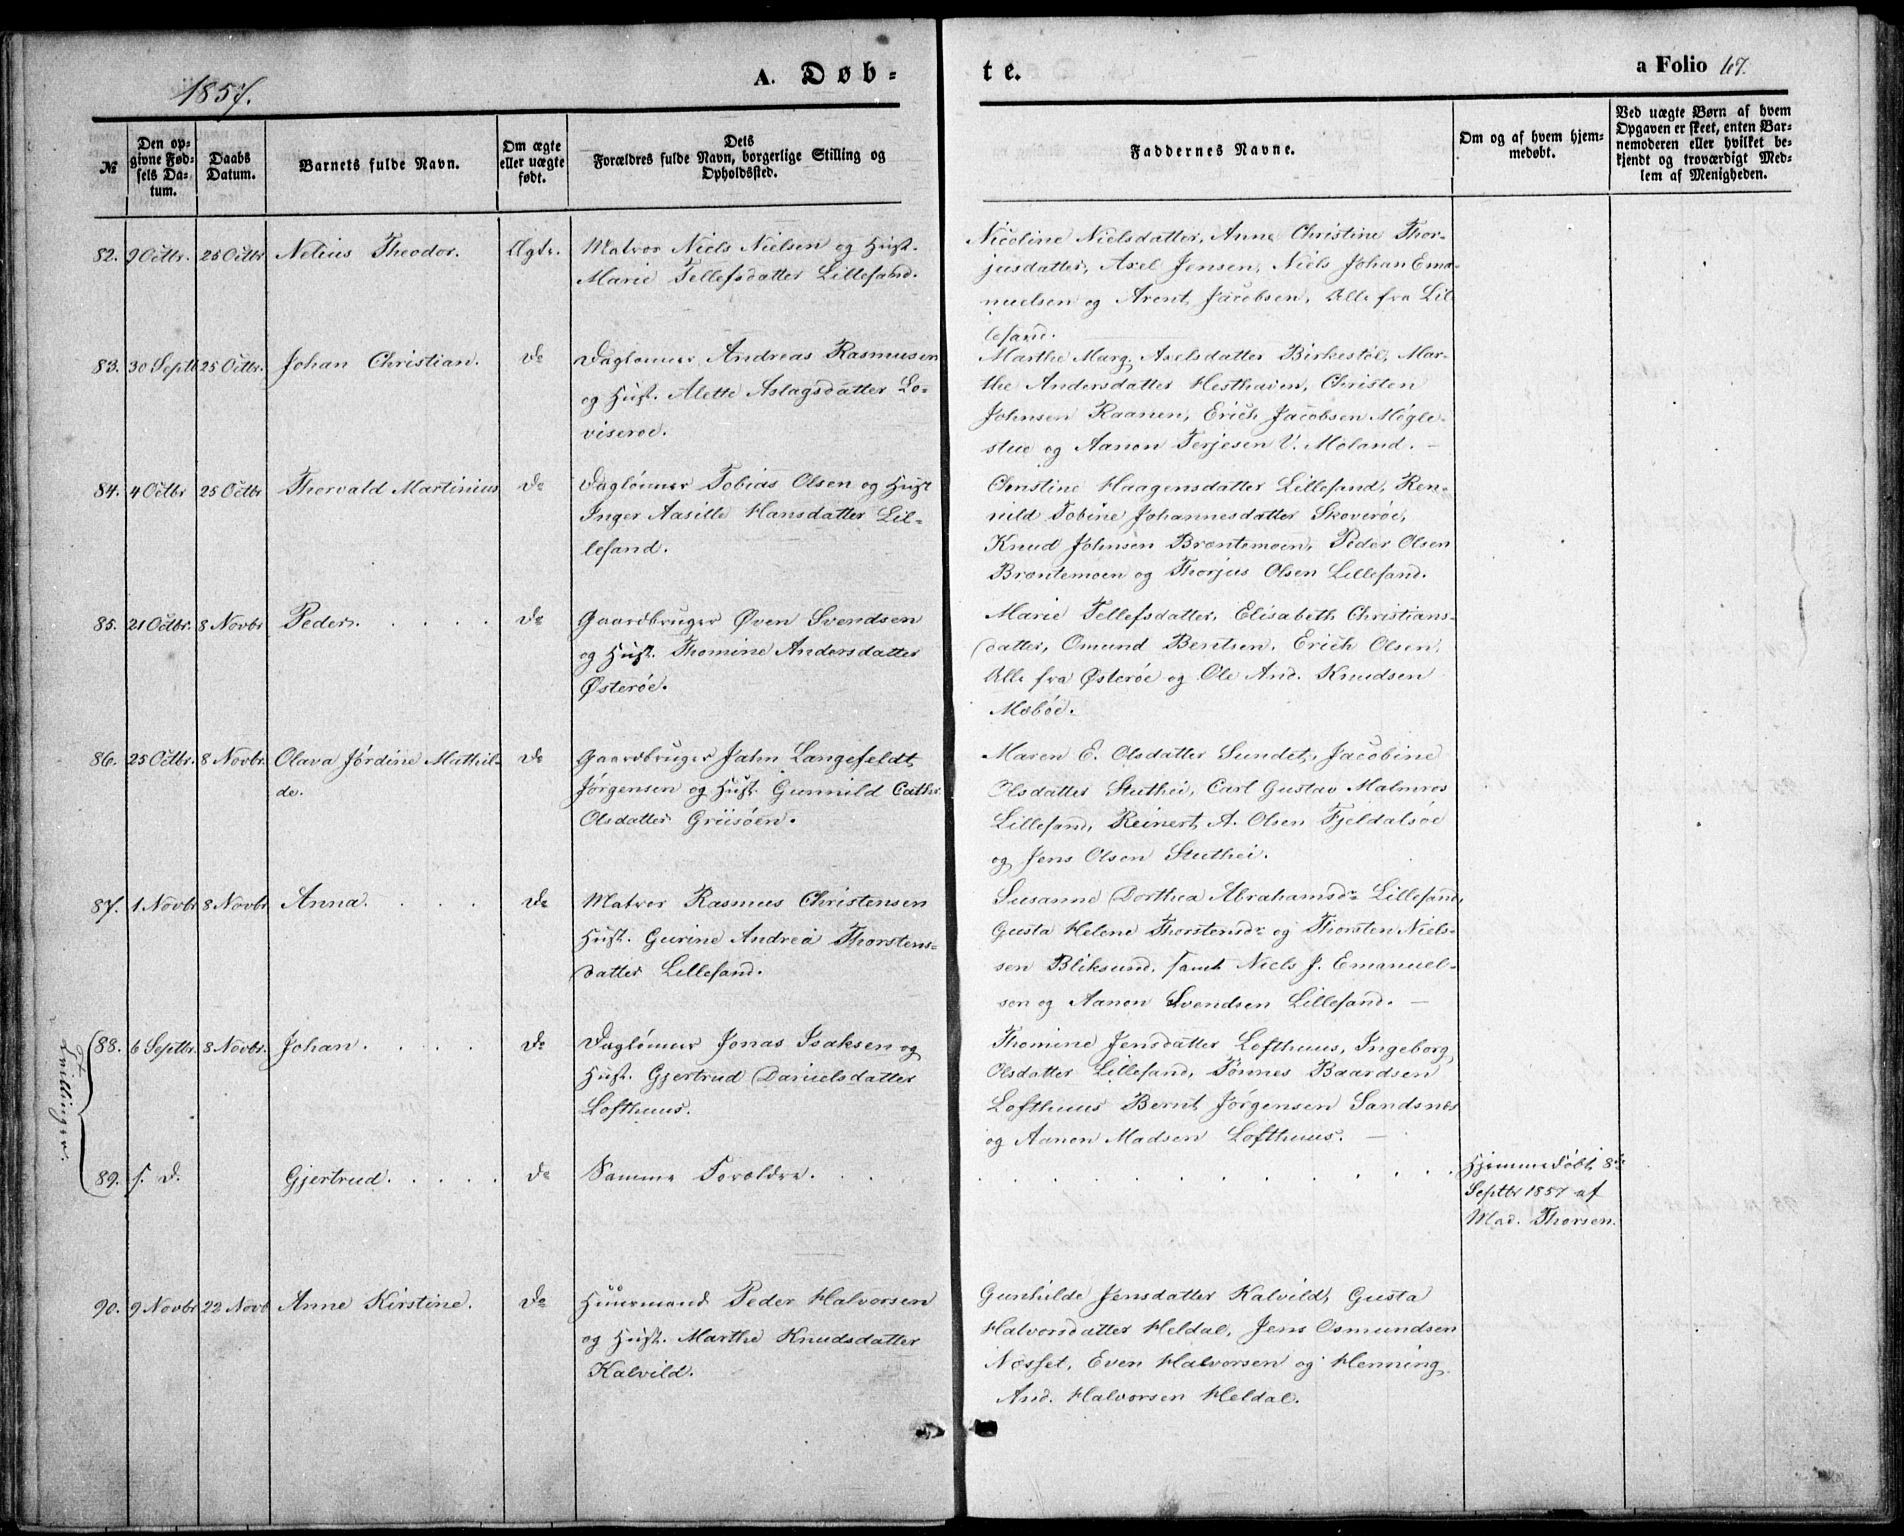 1857.
A. Døb-
te.
a Folio 67.
№
Den op-
givne Fød-
sels Da-
tum.
Daabs
Datum.
Barnets fulde Navn.
Om ægte
eller uægte
født.
Dels
Forældres fulde Navn, borgerlige Stilling og
Opholdssted.
Faddernes Navne.
Om og af hvem hjem-
medøbt.
Ved uægte Børn af hvem
Opgaven er skeet, enten Bar-
nemoderen eller hvilket be-
kjendt og troværdigt Med-
lem af Menigheden.
82. 9 Octbr. 25 Octbr Nelius Theodor. Ægte.
Matros Niels Nielsen og Hust.
Marie Tellefsdatter Lillesand.
Nicoline Nielsdatter, Anne Christine Thor-
jusdatter, Axel Jensen, Niels Johan Ema-
nuelsen og Arent Jacobsen, Alle fra Lil-
lesand.
83. 30 Septb 25 Octbr. Johan Christian. Do
Daglønner Andreas Rasmusen
og Hust. Alette Aslagsdatter Lo-
viseroe.
Marthe Marg. Axelsdatter Birkestøl, Mar-
the Andersdatter Hesthaven, Christen
Johnsen Kaanen, Erich Jacobsen Møgle-
stue og Aanon Terjesen V. Moland. -
84. 4 Octbr 25 Octbr Thorvald Martinius Do
Daglønner Tobias Olsen og Hust
Inger Aasille Hansdatter Lil-
lesand.
Christine Haagensdatter Lillesand, Ren-
nild Tobine Johannesdatter Skoverøe,
Knud Johnsen Bræntemoen, Peder Olsen
Bræntemoen og Thorjus Olsen Lillesand.
85. 21 Octbr. 8 Novbr Peder. Do
Gaardbruger Øven Svendsen
og Hust. Thomine Andersdatter
Østerøe.
Marie Tellefsdatter, Elisabeth Christians-
datter, Omund Bentsen, Erich Olsen,
Alle fra Østerøe og Ole And. Knudsen
Mæbøe.
86. 25 Octbr. 8 Novbr. Olava Jørdine Mathil-
de. Do
Gaardbruger Jahn Langefeldt
Jørgensen og Hust. Gunnild Cathr.
Olsdatter Griisøen.
Maren E. Olsdatter Sundet, Jacobine
Olsdatter Stuthei, Carl Gustav Malmros
Lillesand, Reinert A. Olsen Fjeldalsøe
og Jens Olsen Stuthei.
87. 1 Novbr 8 Novbr Anna. Do
Matros Rasmus Christensen
Hust. Gurine Andrea Thorstens-
datter Lillesand.
Susanne Dorthea Abrahamsdr Lillesand,
Gusta Helene Thorstensdr og Thorsten Niels-
sen Bliksund, samt Niels J. Emanuel-
sen og Aanon Svendsen Lillesand. -
Tvillinger.
88. 6 Septbr. 8 Novbr. Johan. Do
Daglønner Jonas Isaksen og
Hust. Gjertrud Danielsdatter
Lofthuus.
Thomine Jensdatter Lofthuus, Ingeborg
Olsdatter Lillesand, Tønnes Baardsen
Lofthuus Bernt Jørgensen Sandsnæs
og Aanon Madsen Lofthuus. -
89. s. D. Gjertrud. Do
Samme Forældre.
Hjemmedøbt 8de
Septbr 1857 af
Mad. Thorsen.
90. 9 Novbr 22 Novb Anne Kirstine. Do
Huusmand Peder Halvorsen
og Hust. Marthe Knudsdatter
Kalvild.
Gunhilde Jensdatter Kalvild, Gusta
Halvorsdatter Heldal, Jens Osmundsen
Næsset, Even Halvorsen og Henning
And. Halvorsen Heldal.